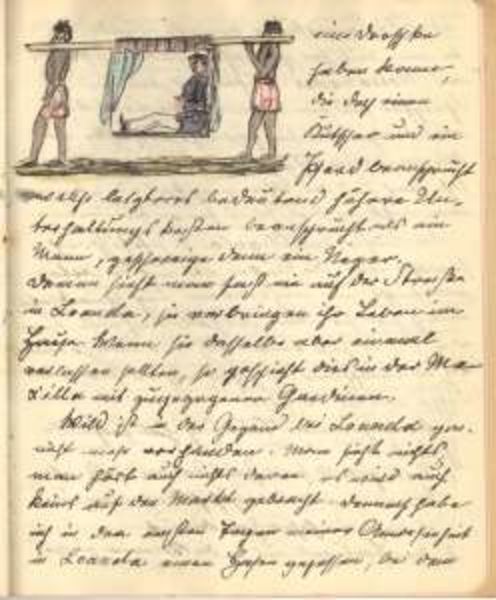 eine Droschke
haben kann,
die doch einen
Kutscher und ein
Pferd beansprucht
welch letzteres bedeutend höhere Un-
terhaltungskosten beansprucht als ein
Mann, geschweige denn ein Neger.
Damen sieht man fast nie auf der Strasse
in Loanda, sie verbringen ihr Leben im
Hause. Wenn sie dasselbe aber einmal
verlassen sollten, so geschieht dies in der Ma-
xilla mit zugezogenen Gardinen.
Wild ist in der Gegend bei Loanda gar
nicht mehr vorhanden. Man sieht nichts
man hört auch nichts davon, es wird auch
keins auf den Markt gebracht. Dennoch habe
ich in den ersten Tagen meiner Anwesenheit
in Loanda einen Hasen gegessen, bei dem